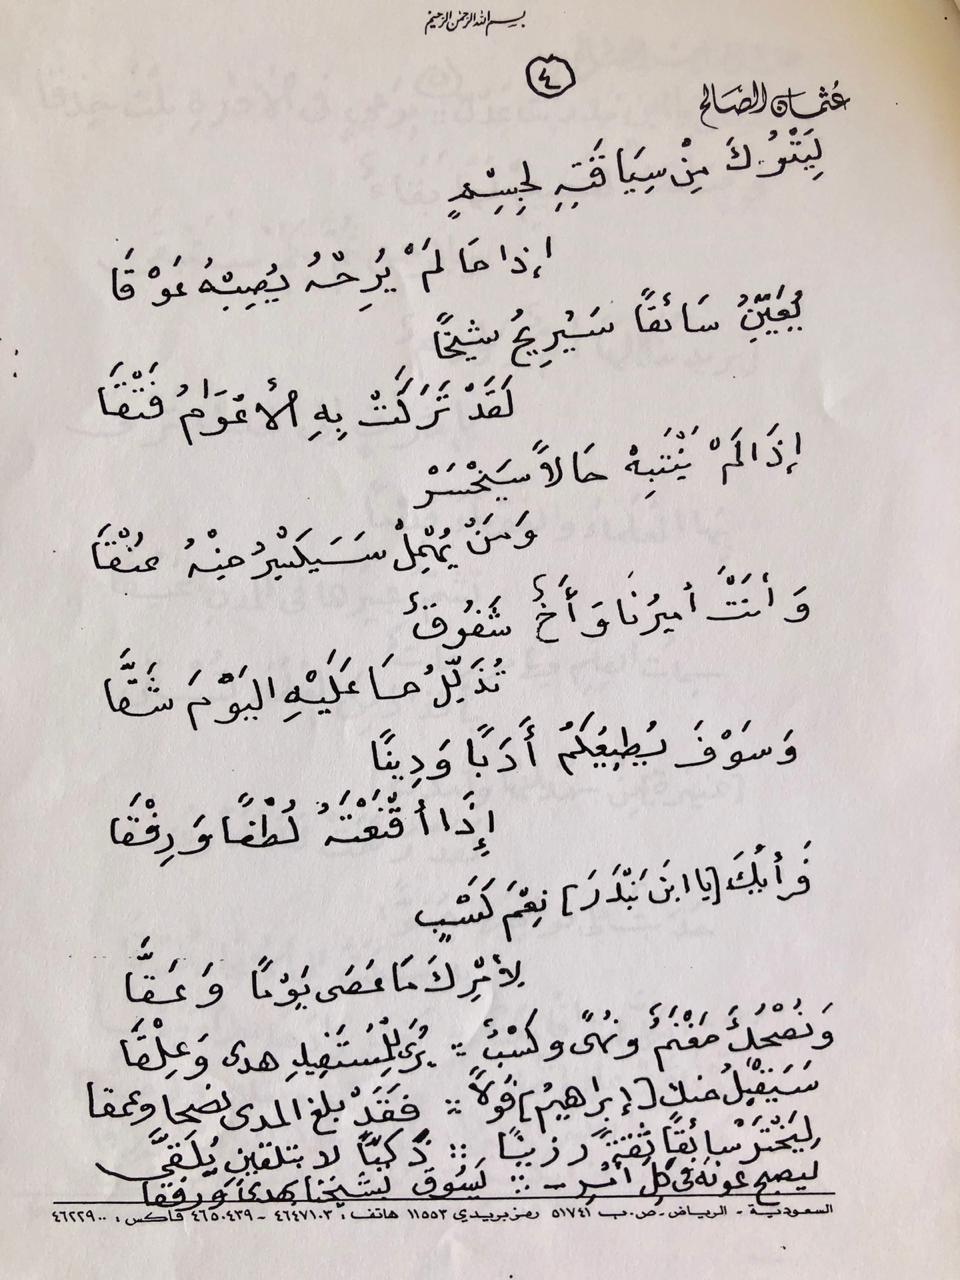 بسم الله الرحمن الرحيم
٤
عثمان الصالح
لِيَتْرُكَ مِنْ سِيَاقَتِهِ لِجِسْمٍ
إذا ما لَمْ يُرِحْهُ يُصِبْهُ عَوْقَا
يُعَيِّنُ سَائقاً سَيُرِيحُ شيخًا
لَقَدْ تَرَكَتْ بِهِ الأعْوَامُ فَتْقَا
إذَا لَمْ يَنْتَبِهْ حَالاً سَيَخْسَرْ
وَمَنْ يُهْمِلْ سَيَكْسِرُ مِنْهُ عُنْقَا
وَأنتَ أميرُنَا وَأَخٌ شَفُوقٌ
تُذَلِّلُ مَا عَلَيْهِ اليَوْمَ شَقَّا
وَسَوْفَ يُطِيعُكُمْ أَدَبًا وَدِينًا
إِذَا أقْنَعْتَهُ لُطْفًا وَرِفْقَا
فَرَأيُكَ [يا ابنَ بَنْدَرَ] نِعْمَ كَسْبٍ
لِأمْرِكَ مَا عَصَى يَوْمًا وَعَقَّا
وَنُصْحُكَ مَغْنَمٌ ونُهًى وكَسْبٌ :: يُرَى لِلْمُسْتَفِيدِ هدى وَعِلْقَا
سَيَقْبَلُ منك [إبراهيمُ] قولاً :: فَقَدْ بلغ المدى نصحا وعمقا
لِيَخْتَرْ سائقاً ثِقَةً رزينًا :: ذكيًّا لا بتلقينٍ يُلَقَّى
ليصبح عونه في كل أمرٍ :: لسوق لشيخنا هدىً ورفقا
السعودية - الرياض - ص.ب ٥١٧٤١ رمز بريدي ١١٥٥٣ هاتف : ٤٦٤٧١٠٣ - ٤٦٥٠٤٣٩ فاكس : ٤٦٢٢٩٠٠